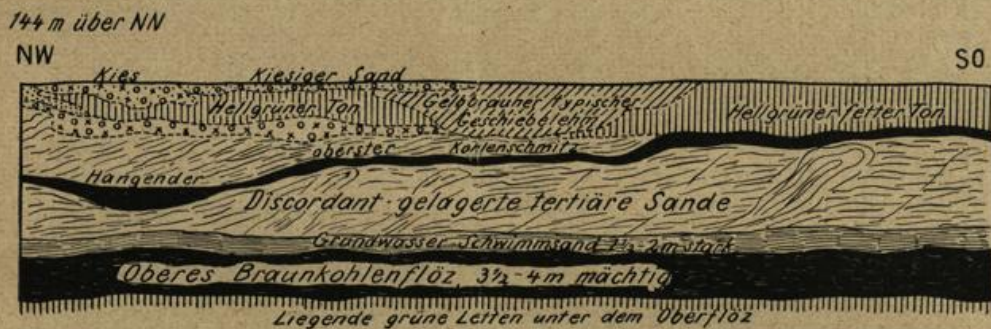 144 m über NN
NW SO
Kies Kiesiger Sand
Hellgrüner Ton Gelbbrauner typischer Geschiebelehm Hellgrüner fetter Ton
oberster Kohlenschmitz
Hangender
Discordant gelagerte tertiäre Sande
Grundwasser-Schwimmsand 1½-2m stark
Oberes Braunkohlenflöz, 3½-4m mächtig
Liegende grüne Letten unter dem Oberflöz